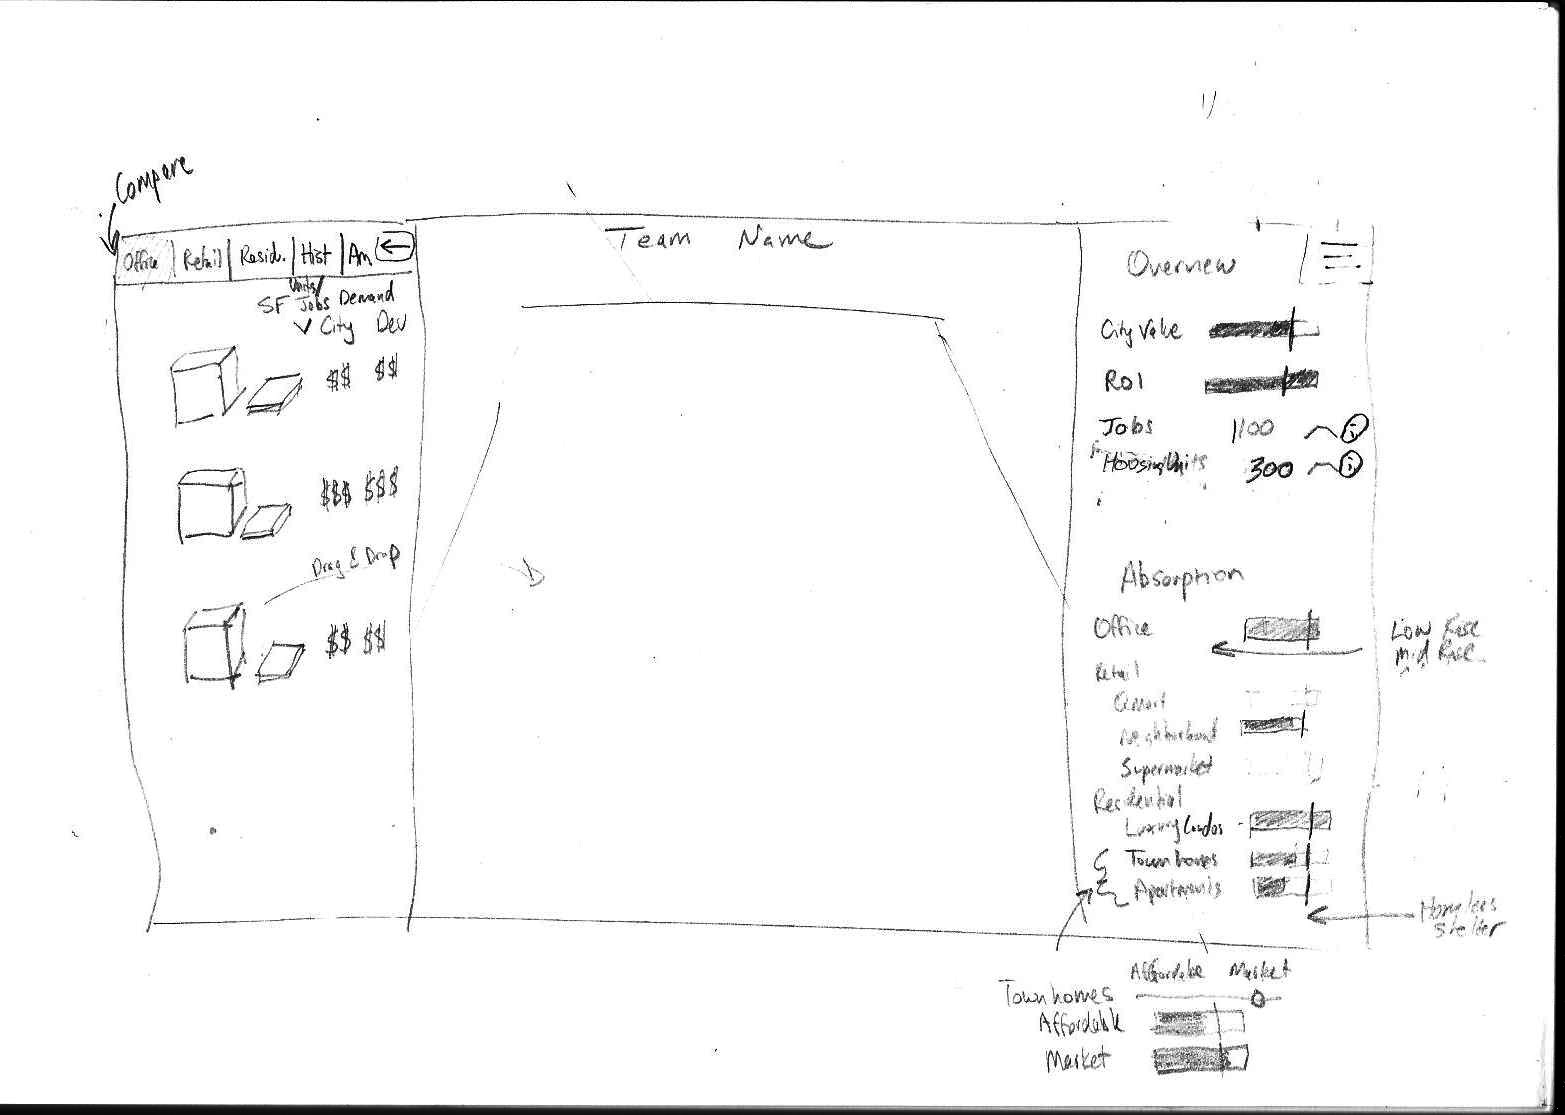 Compare
Office Retail Resid. Hist Am
Units/
SF Jobs Demand
City Dev
$$ $$
$$$ $$$
Drag & Drop
$$ $$
Team Name
Overview
City Value
ROI
Jobs 1100
Housing Units 300
Absorption
Office
Low Rise
Mid Rise
Retail
Neighborhood
Supermarket
Residential
Luxury Condos
Townhomes
Apartments
Homeless
Shelter
Affordable Market
Townhomes
Affordable
Market